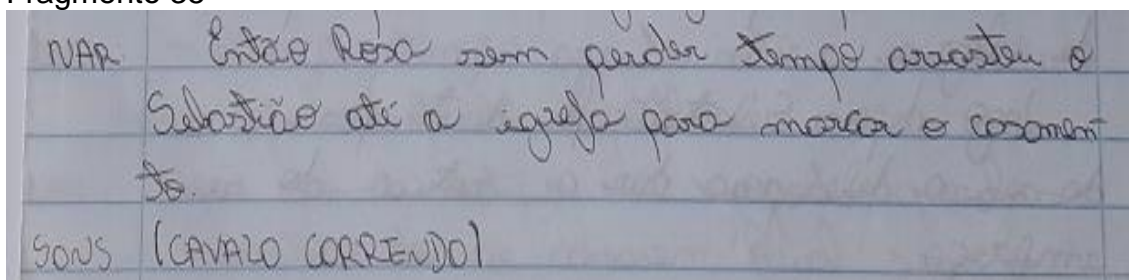 NAR Então Rosa sem perder tempo arrastou o
Sebastião até a igreja para marcar o casamen
to.
SONS (CAVALO CORRENDO)